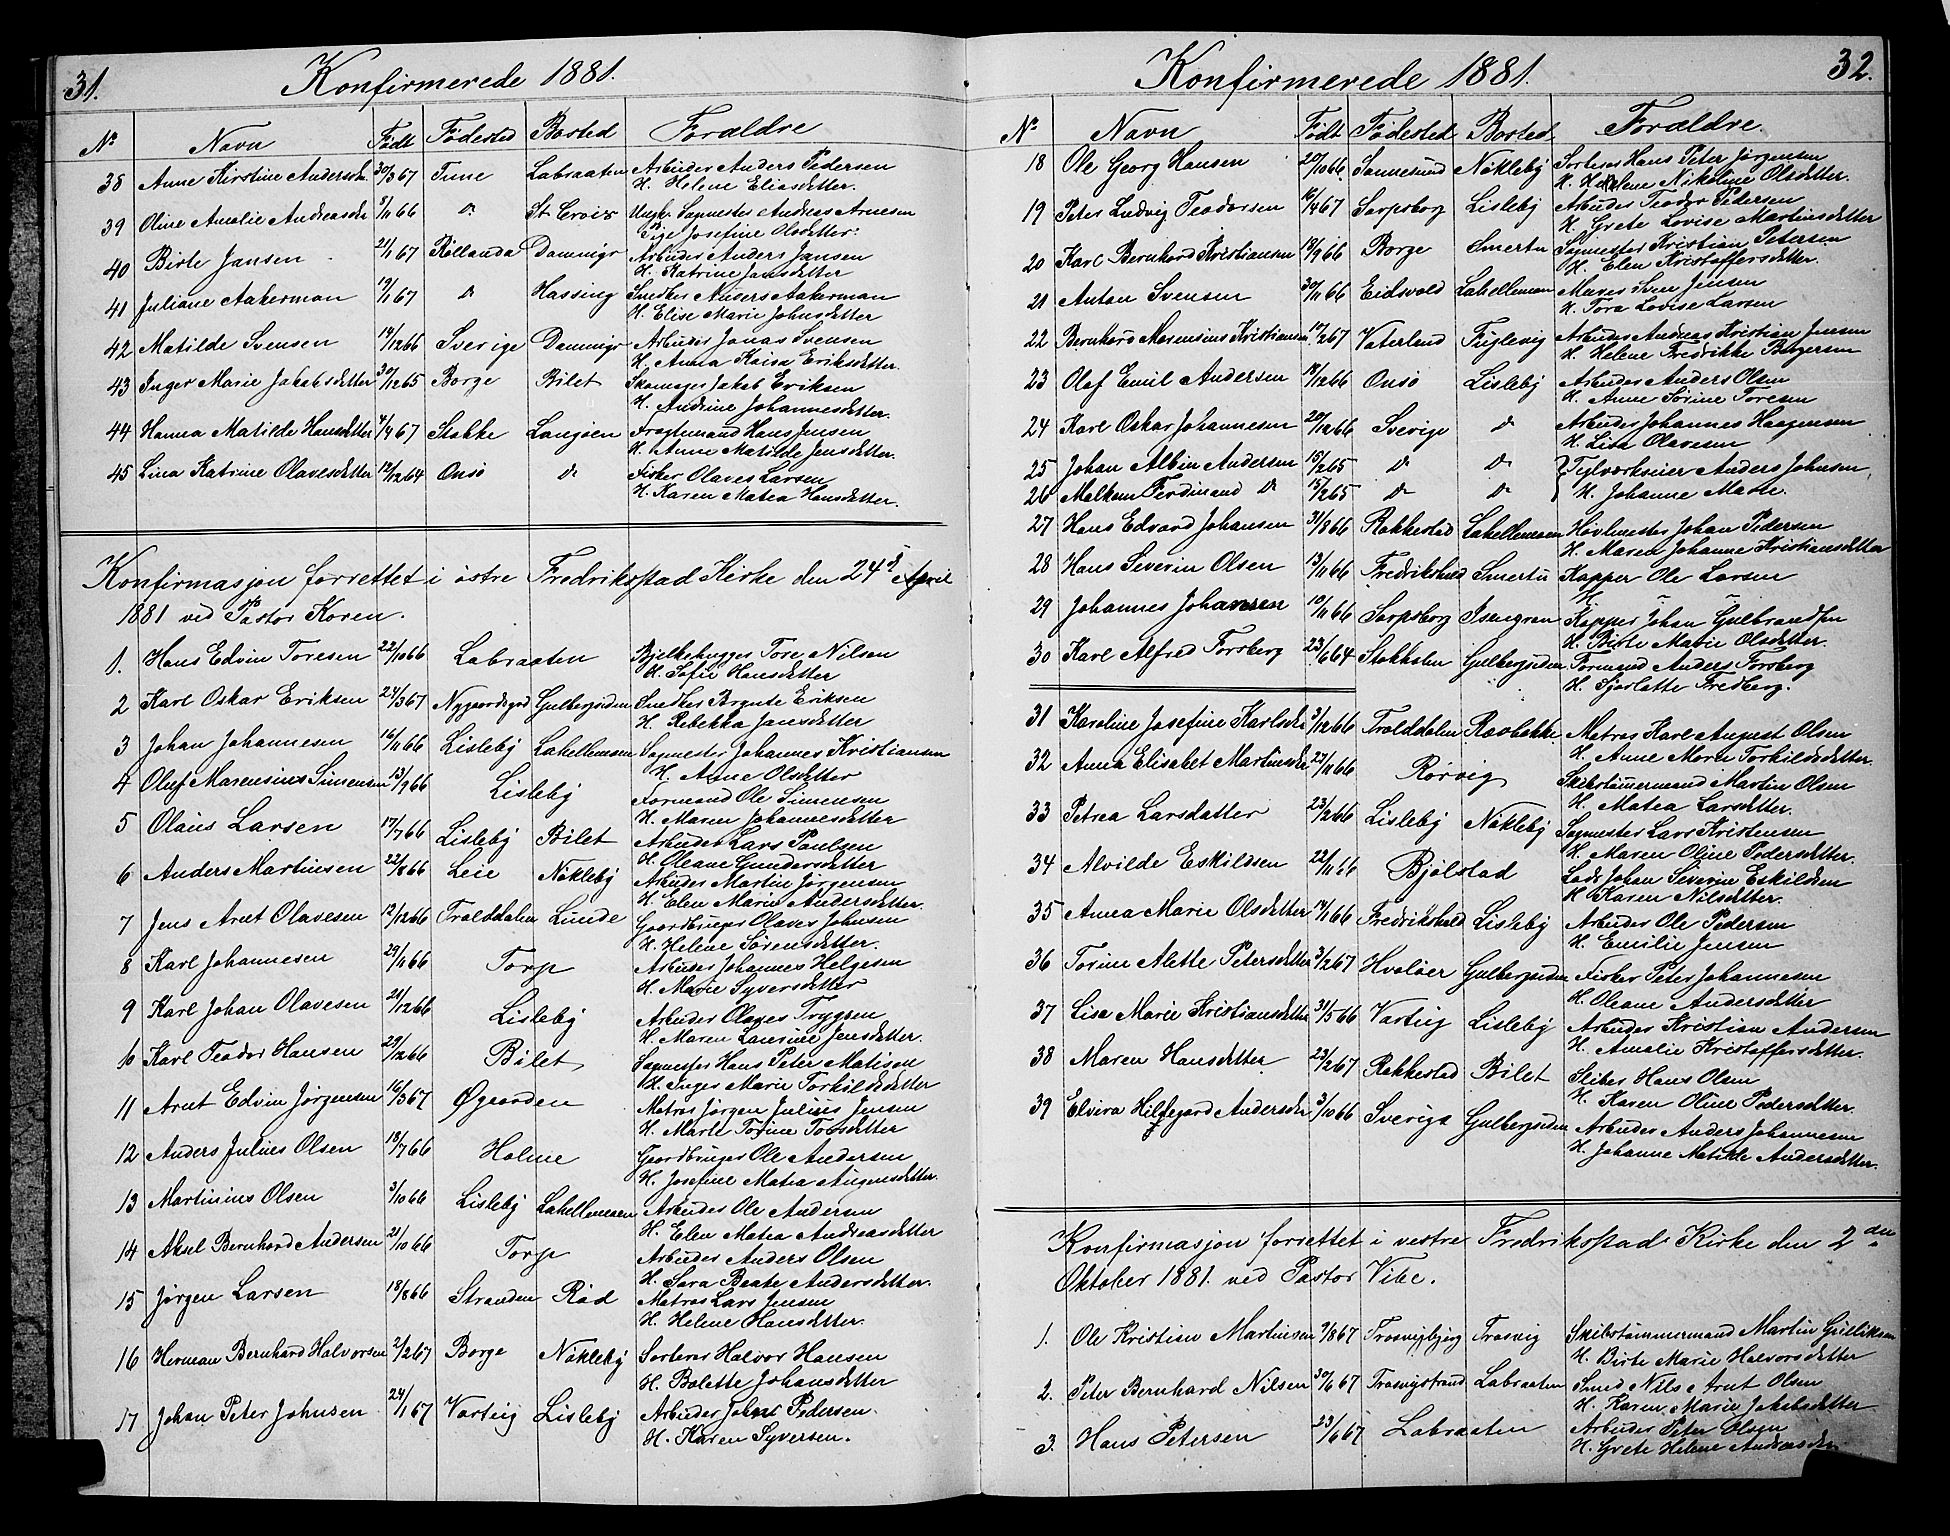 31.
Konfirmerede 1881.
No Navn Födt Födested Bosted Forældre
38 Anne Kirstine Andersdr. 30/3 67 Tune Labraaten Arbeider Anders Pedersen
H. Helene Eliasdetter.
39 Oline Amalie Andreasdr 3/11 66 do St. Croix Ungk. Sagmester Andreas Arnesen
Pige Josefine Olsdetter
40 Birte Jansen 21/1 67 Rollands Damnigr Arbeider Anders Jansen
H. Katrine Jansdetter
41 Juliane Aakerman 19/1 67 do Hassing Snedker Anders Aakerman
H. Elise Marie Johnsdetter
42 Matilde Svensen 14/12 66 Sverige Damnigr Arbeider Jonas Svensen
H. Anna Kaisa Eriksdetter.
43 Inger Marie Jakobsdetter 30/12 65 Borge Bilet Skomager Jakob Eriksen
H. Andrine Johannesdetter.
44 Hanna Matilde Hansdetter 4/4 67 Stokke Langöen Fragtemand Hans Jensen
H. Anne Matilde Jensdetter.
45 Lina Katrine Olavesdetter 12/12 64 Onsö do Fisker Olaves Larsen
H. Karen Matea Hansdetter.
Konfirmasjon forrettet i östre Fredrikstad Kirke den 24de April
1881 ved Pastor Koren.
1. Hans Edvin Toresen 22/10 66 Labraaten Bjelkehugger Tore Nilsen
H. Sofie Hansdetter
2 Karl Oskar Eriksen 24/3 67 Nygaardsgd Gulbergsiden Snedker Brynte Eriksen
H. Rebekka Jansdetter
3 Johan Johannesen 16/11 66 Lisleby Lahellemoen Sagmester Johannes Kristiansen
H. Anne Olsdetter
4 Oluf Marensius Simensen 13/9 66 Lisleby Formand Ole Simensen
H. Maren Johannesdetter
5 Olaus Larsen 17/7 66 Lisleby Bilet Arbeider Lars Paulsen
H. Oleane Gundersdetter
6 Anders Martinsen 22/8 66 Leie Nökleby Arbeider Martin Jörgensen
H. Elen Marie Andersdetter.
7 Jens Arnt Olavesen 12/12 66 Trolddalen Lunde Gaardbruger Olaves Johnsen
H. Helene Sörensdetter.
8 Karl Johannesen 29/11 66 Torp Arbeider Johannes Helgesen
H. Marie Syversdetter
9 Karl Johan Olavesen 21/12 66 Lisleby Arbeider Olaves Trygsen
H. Maren Laurine Jensdetter.
10 Karl Teodor Hansen 29/12 66 Bilet Sagmester Hans Peter Matisen
H. Inger Marie Torkildsdetter
11 Arnt Edvin Jörgensen 16/3 67 Øgaarden Matros Jörgen Julius Jensen
H. Marte Torine Torsdetter
12 Anders Julius Olsen 18/7 66 Holme Gaardbruger Ole Andersen
H. Josefine Matea Augensdetter.
13 Martinius Olsen 3/10 66 Lisleby Lahellemoen Arbeider Ole Andersen
H. Elen Matea Andreasdetter
14 Aksel Bernhard Andersen 21/10 66 Torp Arbeider Anders Olsen
H. Sara Beate Andersdetter.
15 Jörgen Larsen 18/8 66 Stranden Röd Matros Lars Jensen
H. Helene Hansdetter.
16 Herman Bernhard Halvorsen 2/2 67 Borge Nökleby Sorterer Halvor Hansen
H. Bolette Johansdetter
17 Johan Peter Johnsen 24/1 67 Varteig Lisleby Arbeider John Pedersen.
H. Karen Syversen.
32.
Konfirmerede 1881.
No Navn Födt Födested Bosted Forældre.
18 Ole Georg Hansen 20/10 66 Sannesund Nökleby Sorterer Hans Peter Jörgensen
H. Helene Nikoline Olsdetter.
19 Peter Ludvig Teodorsen 16/4 67 Sarpsborg Lisleby Arbeider Teodor Petersen
H. Grete Lovise Martinsdetter
20 Karl Bernhard Kristiansen 18/9 66 Borge Smertu Sagmester Kristian Petersen
H. Elen Kristoffersdetter.
21 Anton Svensen 30/11 66 Eidsvold Lahellemoen Murer Sven Jensen
H. Tora Lovise Larsen
22 Bernhard Marensius Kristiansen 17/2 67 Vaterland Fuglevig Arbeider Andreas Kristian Jensen
H. Helene Fredrikke Borgersen
23 Olaf Emil Andersen 14/12 66 Onsö Lisleby Arbeider Anders Olsen
H. Anne Sörine Toresen
24 Karl Oskar Johannesen 20/12 66 Sverige do Arbeider Johannes Haagensen
H. Lisa Olavesen
25 Johan Albin Andersen 15/2 65 do do Teglværkseier Anders Johnsen
26 Malkum Ferdinand do 15/2 65 do do H. Johanne Marie.
27 Hans Edvard Johansen 31/8 66 Rakkestad Lahellemoen Hövlmester Johan Pedersen
H. Maren Johanne Kristiansdetter
28 Hans Severin Olsen 13/11 66 Fredrikshald Smertu Kapper Ole Larsen
H.
29 Johannes Johansen 10/11 66 Sarpsborg Isengran Kapper Johan Gulbrandsen
H. Birte Marie Olsdetter.
30 Karl Alfred Forsberg 22/6 64 Stokholm Gulbergsiden Formand Anders Forsberg
H. Sjarlotte Fredberg.
31 Karoline Josefine Karlsdr 3/12 66 Trolddalen Ravbakke. Matros Karl August Olsen
H. Anne Maren Torkildsdetter.
32 Anna Elisabet Martinsdr 22/11 66 Rörvig Skibstömmermand Martin Olsen
H. Matea Larsdetter.
33 Petrea Larsdatter 23/2 66 Lisleby Nökleby Sagmester Lars Kristensen
H. Maren Oline Pedersdetter.
34 Alvilde Eskildsen 22/11 66 Bjölstad Lods Johan Severin Eskildsen
H. Karen Nilsdetter.
35 Anna Marie Olsdetter 14/1 66 Fredrikshald Lisleby Arbeider Ole Pedersen
H. Emilie Jensen
36 Torine Alette Petersdetter 3/2 67 Hvalöer Gulbergsiden Fisker Peter Johannesen
H. Oleane Andersdetter
37 Lisa Marie Kristiansdetter 31/5 66 Varteig Lisleby Arbeider Kristian Andersen
H. Amalie Kristoffersdetter.
38 Maren Hansdetter 23/2 67 Rakkestad Bilet Skiber Hans Olsen
H. Karen Oline Pedersdetter.
39 Elvira Hildegard Andersdr 3/10 66 Sverige Gulbergsiden Arbeider Anders Johannesen
H. Johanne Matilde Andersdetter.
Konfirmasjon forrettet i vestre Fredrikstads Kirke den 2den
Oktober 1881. ved Pastor Vibe.
1. Ole Kristian Martinsen 9/8 67 Trosvigbjerg Trosvig Skibstömmermand Martin Gulliksen
H. Birte Marie Halvorsdetter
2. Peter Bernhard Nilsen 30/6 67 Trosvigstrand Labraaten Smed Nils Arnt Olsen
H. Karen Marie Jakobsdetter
3. Hans Petersen 23/6 67 Labraaten Arbeider Peter Olsen
H. Grete Helene Andreasdr